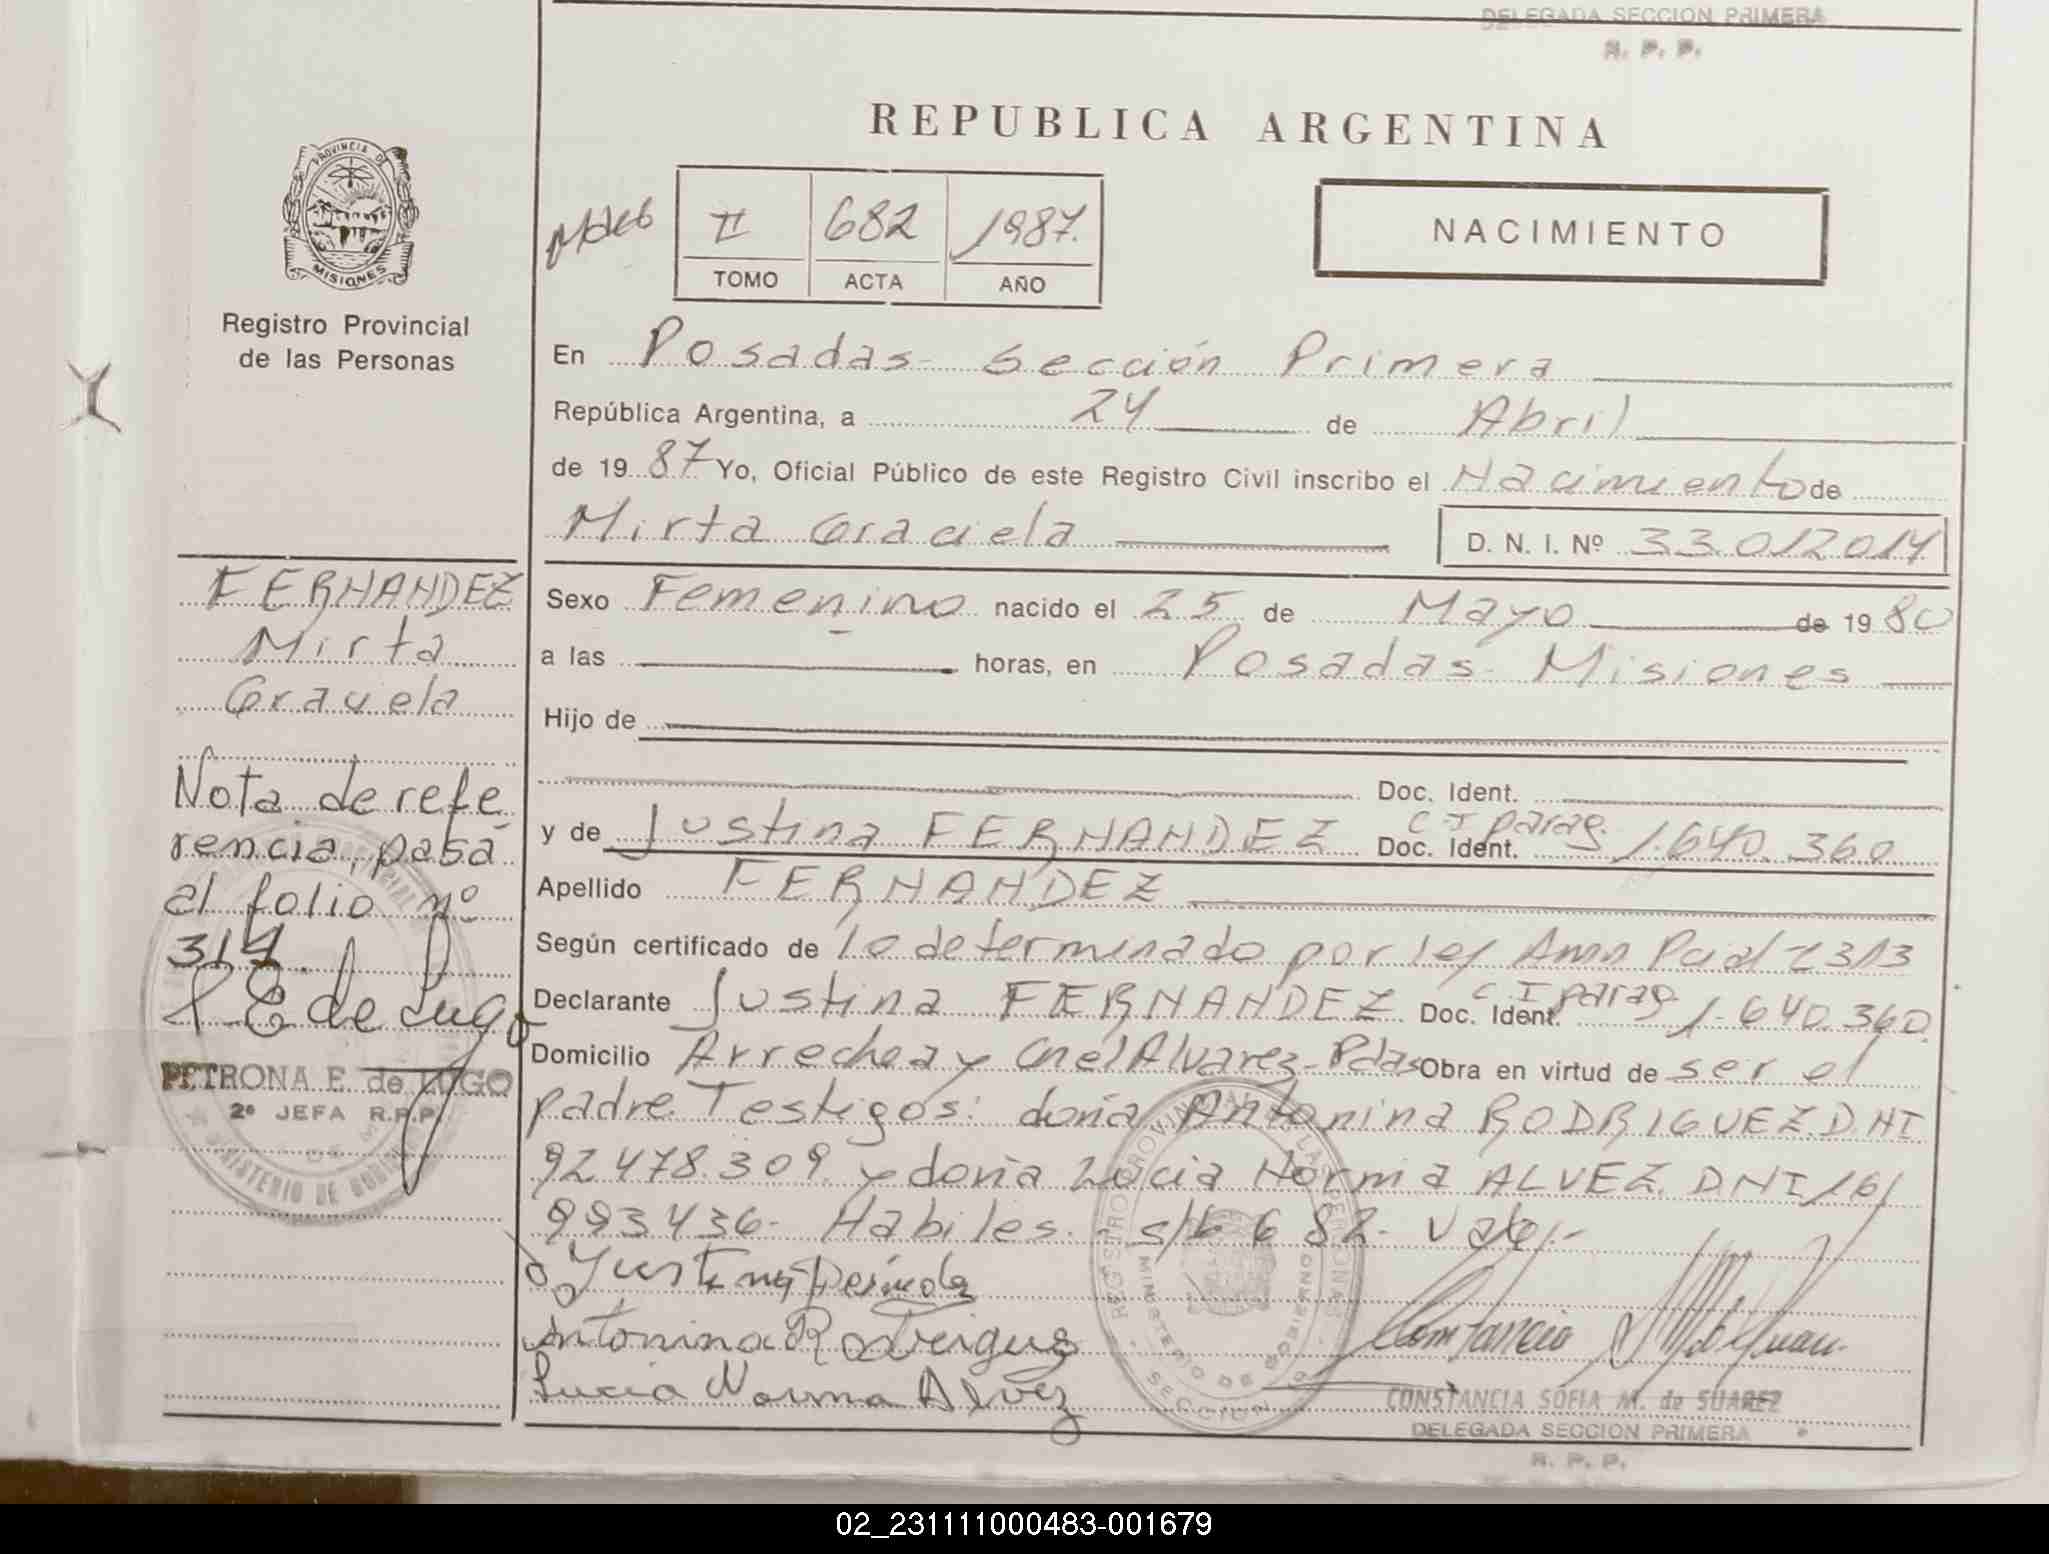 DELEGADA SECCION PRIMERA
R. P. P.
REPUBLICA ARGENTINA
PROVINCIA DE
MISIONES
Registro Provincial
de las Personas
II 682 1987.
TOMO ACTA AÑO
NACIMIENTO
En Posadas - Sección Primera
República Argentina, a 24 de Abril
de 1987 Yo, Oficial Público de este Registro Civil inscribo el Nacimiento de
Mirta Graciela D. N. I. Nº 33.012.014
Sexo Femenino nacido el 25 de Mayo de 1980
a las horas, en Posadas - Misiones
Hijo de
Doc. Ident.
y de Justina FERNANDEZ Doc. Ident. C I parag. 1.640.360
Apellido FERNANDEZ
Según certificado de lo determinado por ley
Declarante Justina FERNANDEZ Doc. Ident. C I parag. 1.640.360
Domicilio Arrechea y Cnel Alvarez - Pdas Obra en virtud de ser el
padre. Testigos: doña Antonina RODRIGUEZ. D.NI
92.478.309. y doña Lucia Norma ALVEZ. DNI 161
993436- Habiles. - s/b 6 82 - Vale.-
FERNANDEZ
Mirta
Graciela
Nota de refe
rencia, pasa
al folio nº
314.
P E de Lugo
PETRONA E. de LUGO
2º JEFA R.P.P.
MINISTERIO DE GOBIERNO
Antonina Rodriguez
Lucia Norma Alvez
REGISTRO PROVINCIAL DE LAS PERSONAS
MINISTERIO DE GOBIERNO
SECCION
CONSTANCIA SOFIA M. de SUAREZ
DELEGADA SECCION PRIMERA
R. P. P.
02_231111000483-001679